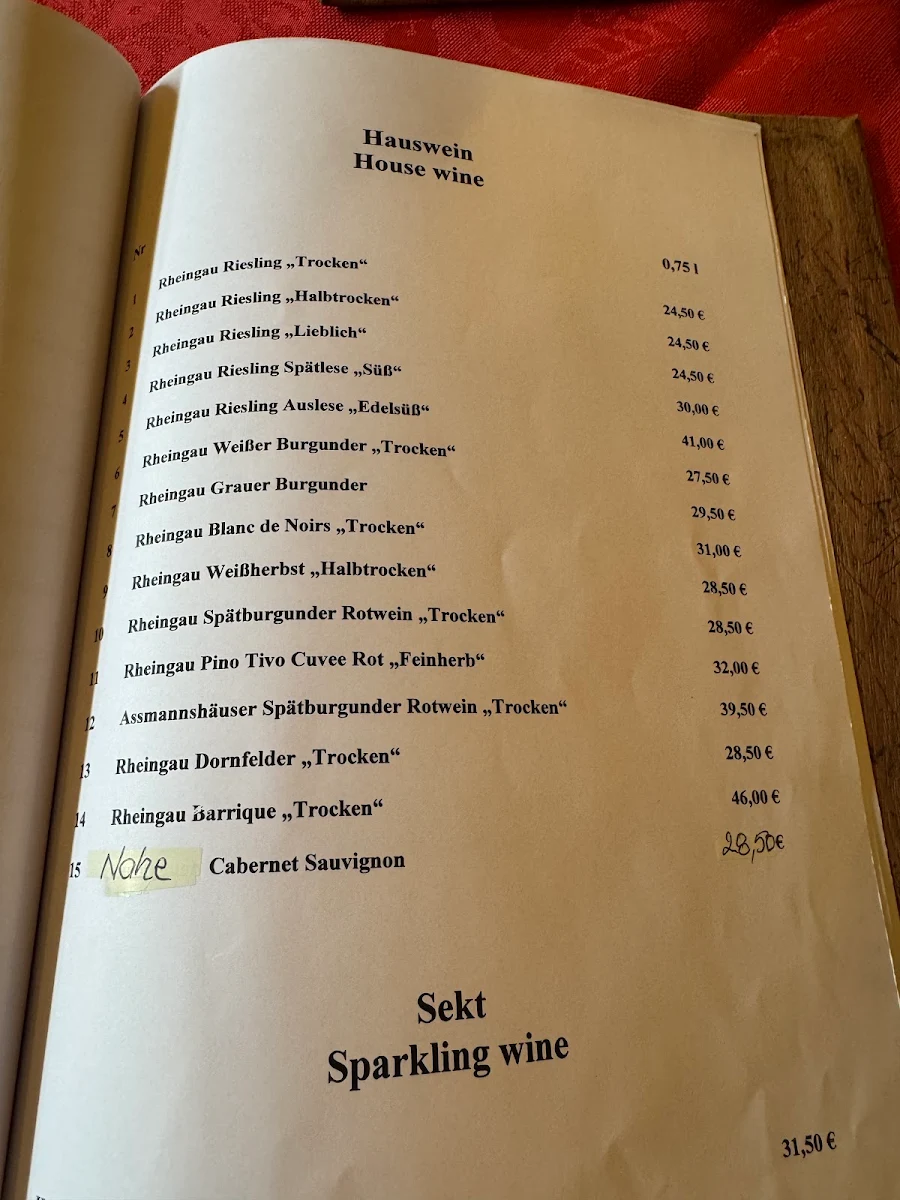 Hauswein
House wine
Nr 0,75 l
1 Rheingau Riesling „Trocken“ 24,50 €
2 Rheingau Riesling „Halbtrocken“ 24,50 €
3 Rheingau Riesling „Lieblich“ 24,50 €
4 Rheingau Riesling Spätlese „Süß“ 30,00 €
5 Rheingau Riesling Auslese „Edelsüß“ 41,00 €
6 Rheingau Weißer Burgunder „Trocken“ 27,50 €
7 Rheingau Grauer Burgunder 29,50 €
8 Rheingau Blanc de Noirs „Trocken“ 31,00 €
9 Rheingau Weißherbst „Halbtrocken“ 28,50 €
10 Rheingau Spätburgunder Rotwein „Trocken“ 28,50 €
11 Rheingau Pino Tivo Cuvee Rot „Feinherb“ 32,00 €
12 Assmannshäuser Spätburgunder Rotwein „Trocken“ 39,50 €
13 Rheingau Dornfelder „Trocken“ 28,50 €
14 Rheingau Barrique „Trocken“ 46,00 €
15 Nahe Cabernet Sauvignon 28,50€
Sekt
Sparkling wine
31,50 €